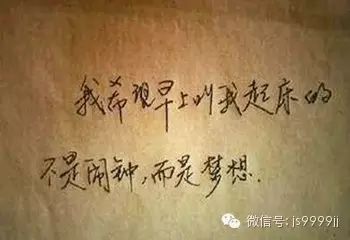 我希望早上叫我起床的
不是闹钟,而是梦想.
微信号: js9999jj